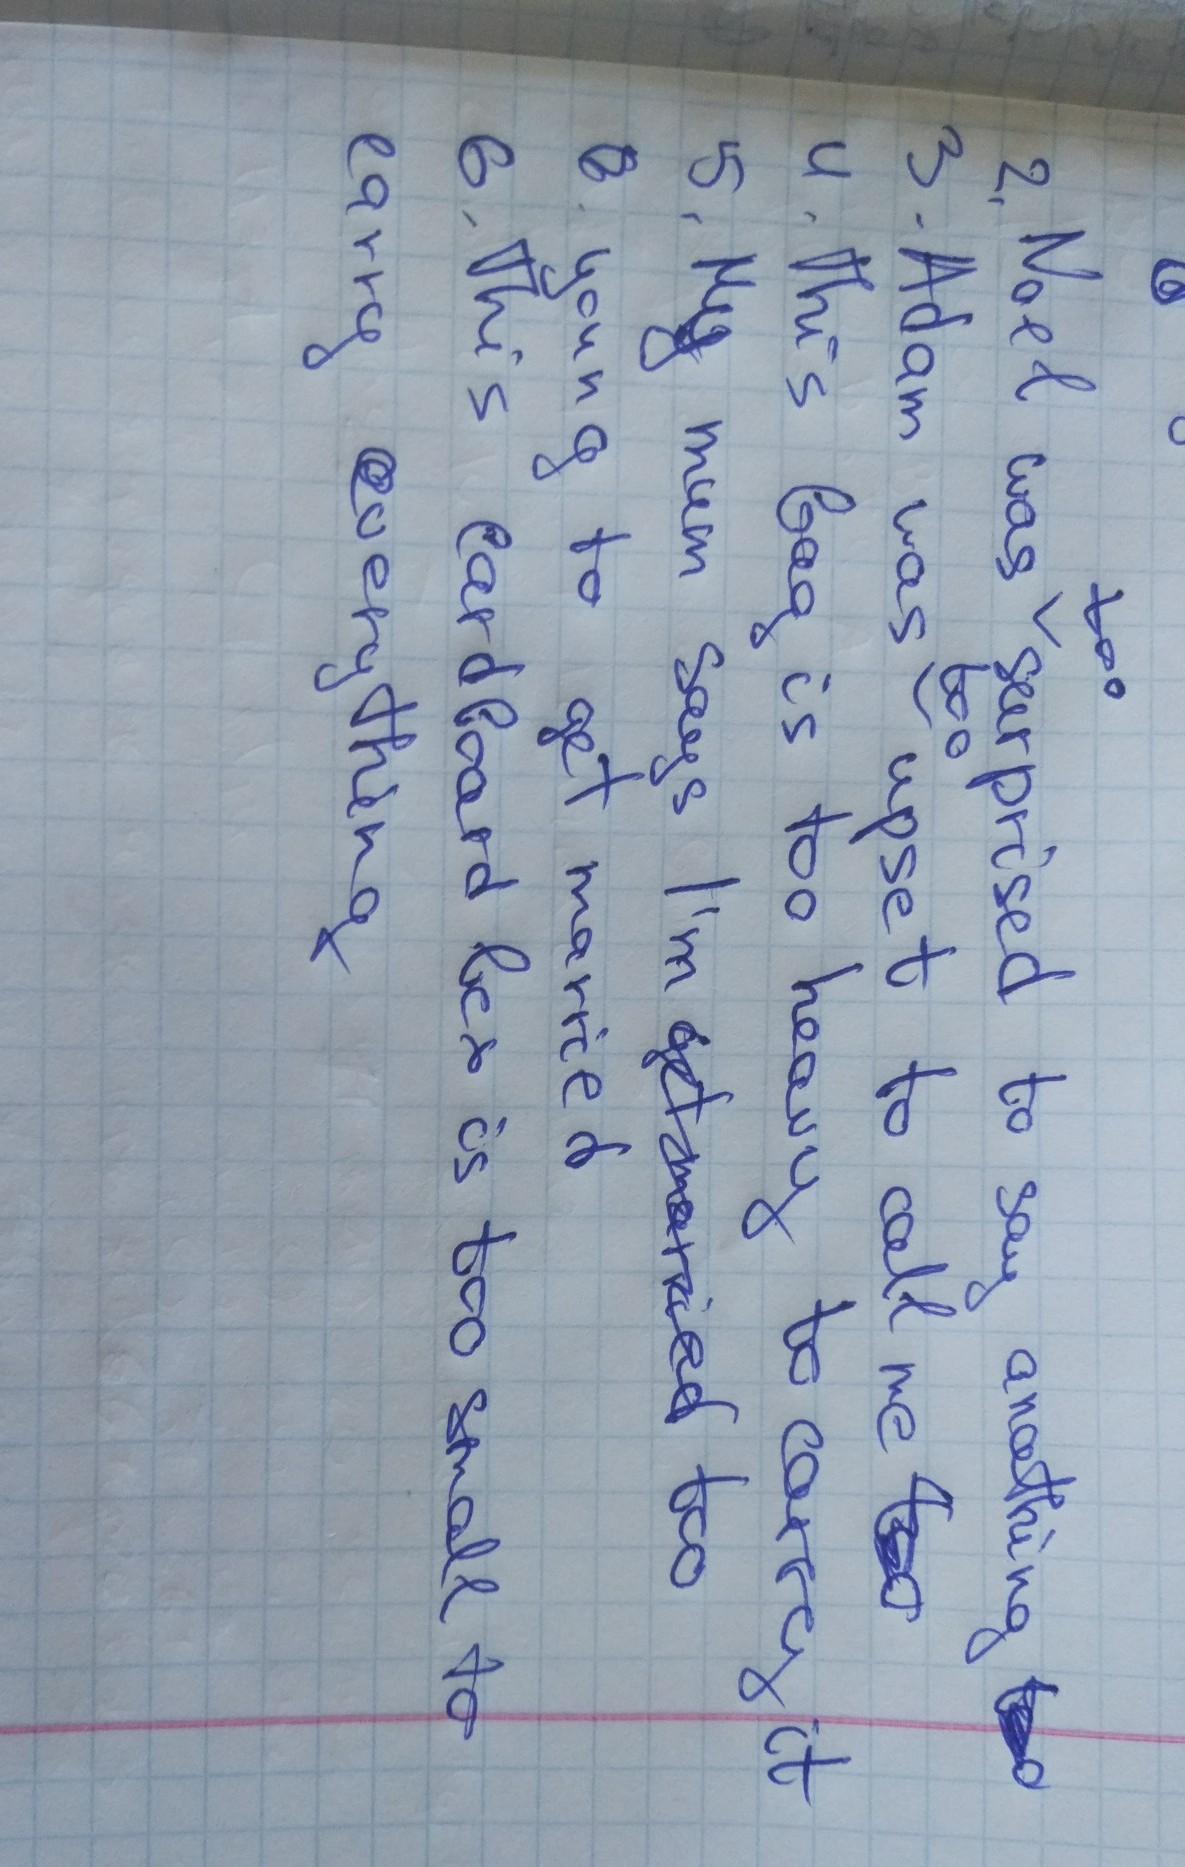 too
2. Noel was surprised to say anothing
too
3. Adam was upset to call me
4. This bag is too heavy to carry it
5. My mum says I'm get maried too
young to get maried
6. This cardboard box is too small to
carry everything